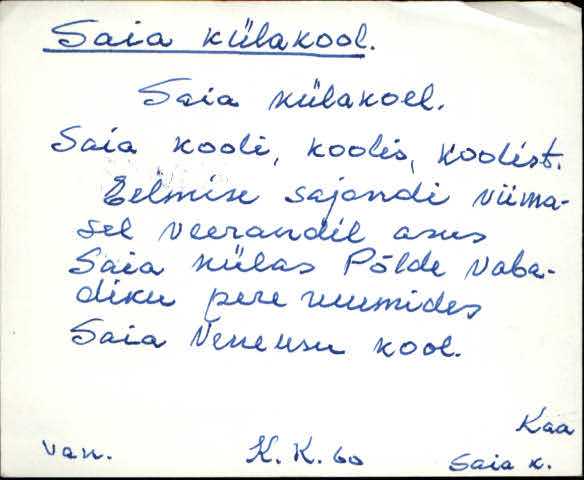 Saia külakool.
Saia külakool.
Saia kooli, koolis, koolist.
Eelmise sajandi viima-
sel veerandil asus
Saia külas Põlde vaba-
diku pere ruumides
Saia Veneusu kool.
Kaa
van. K. K. 60 Saia k.